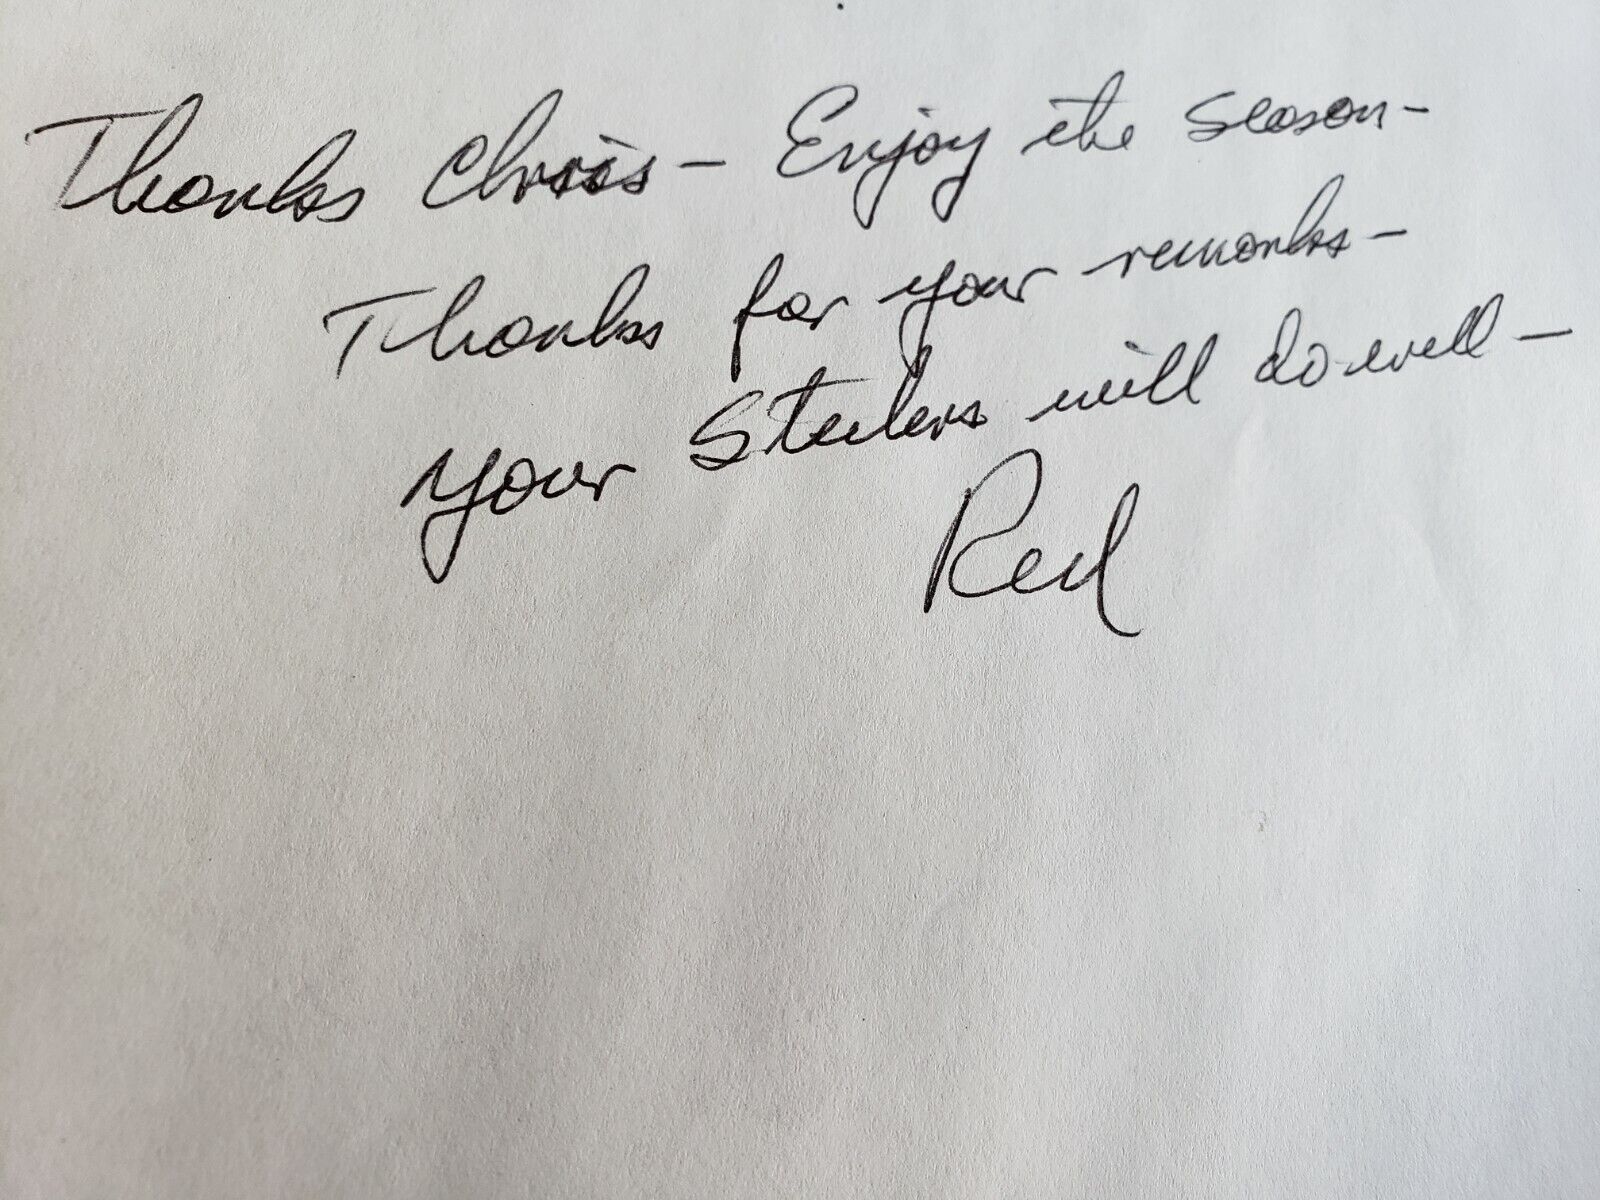 Thanks Chris - Enjoy the season -
Thanks for your remarks -
your Steelers will do well -
Red